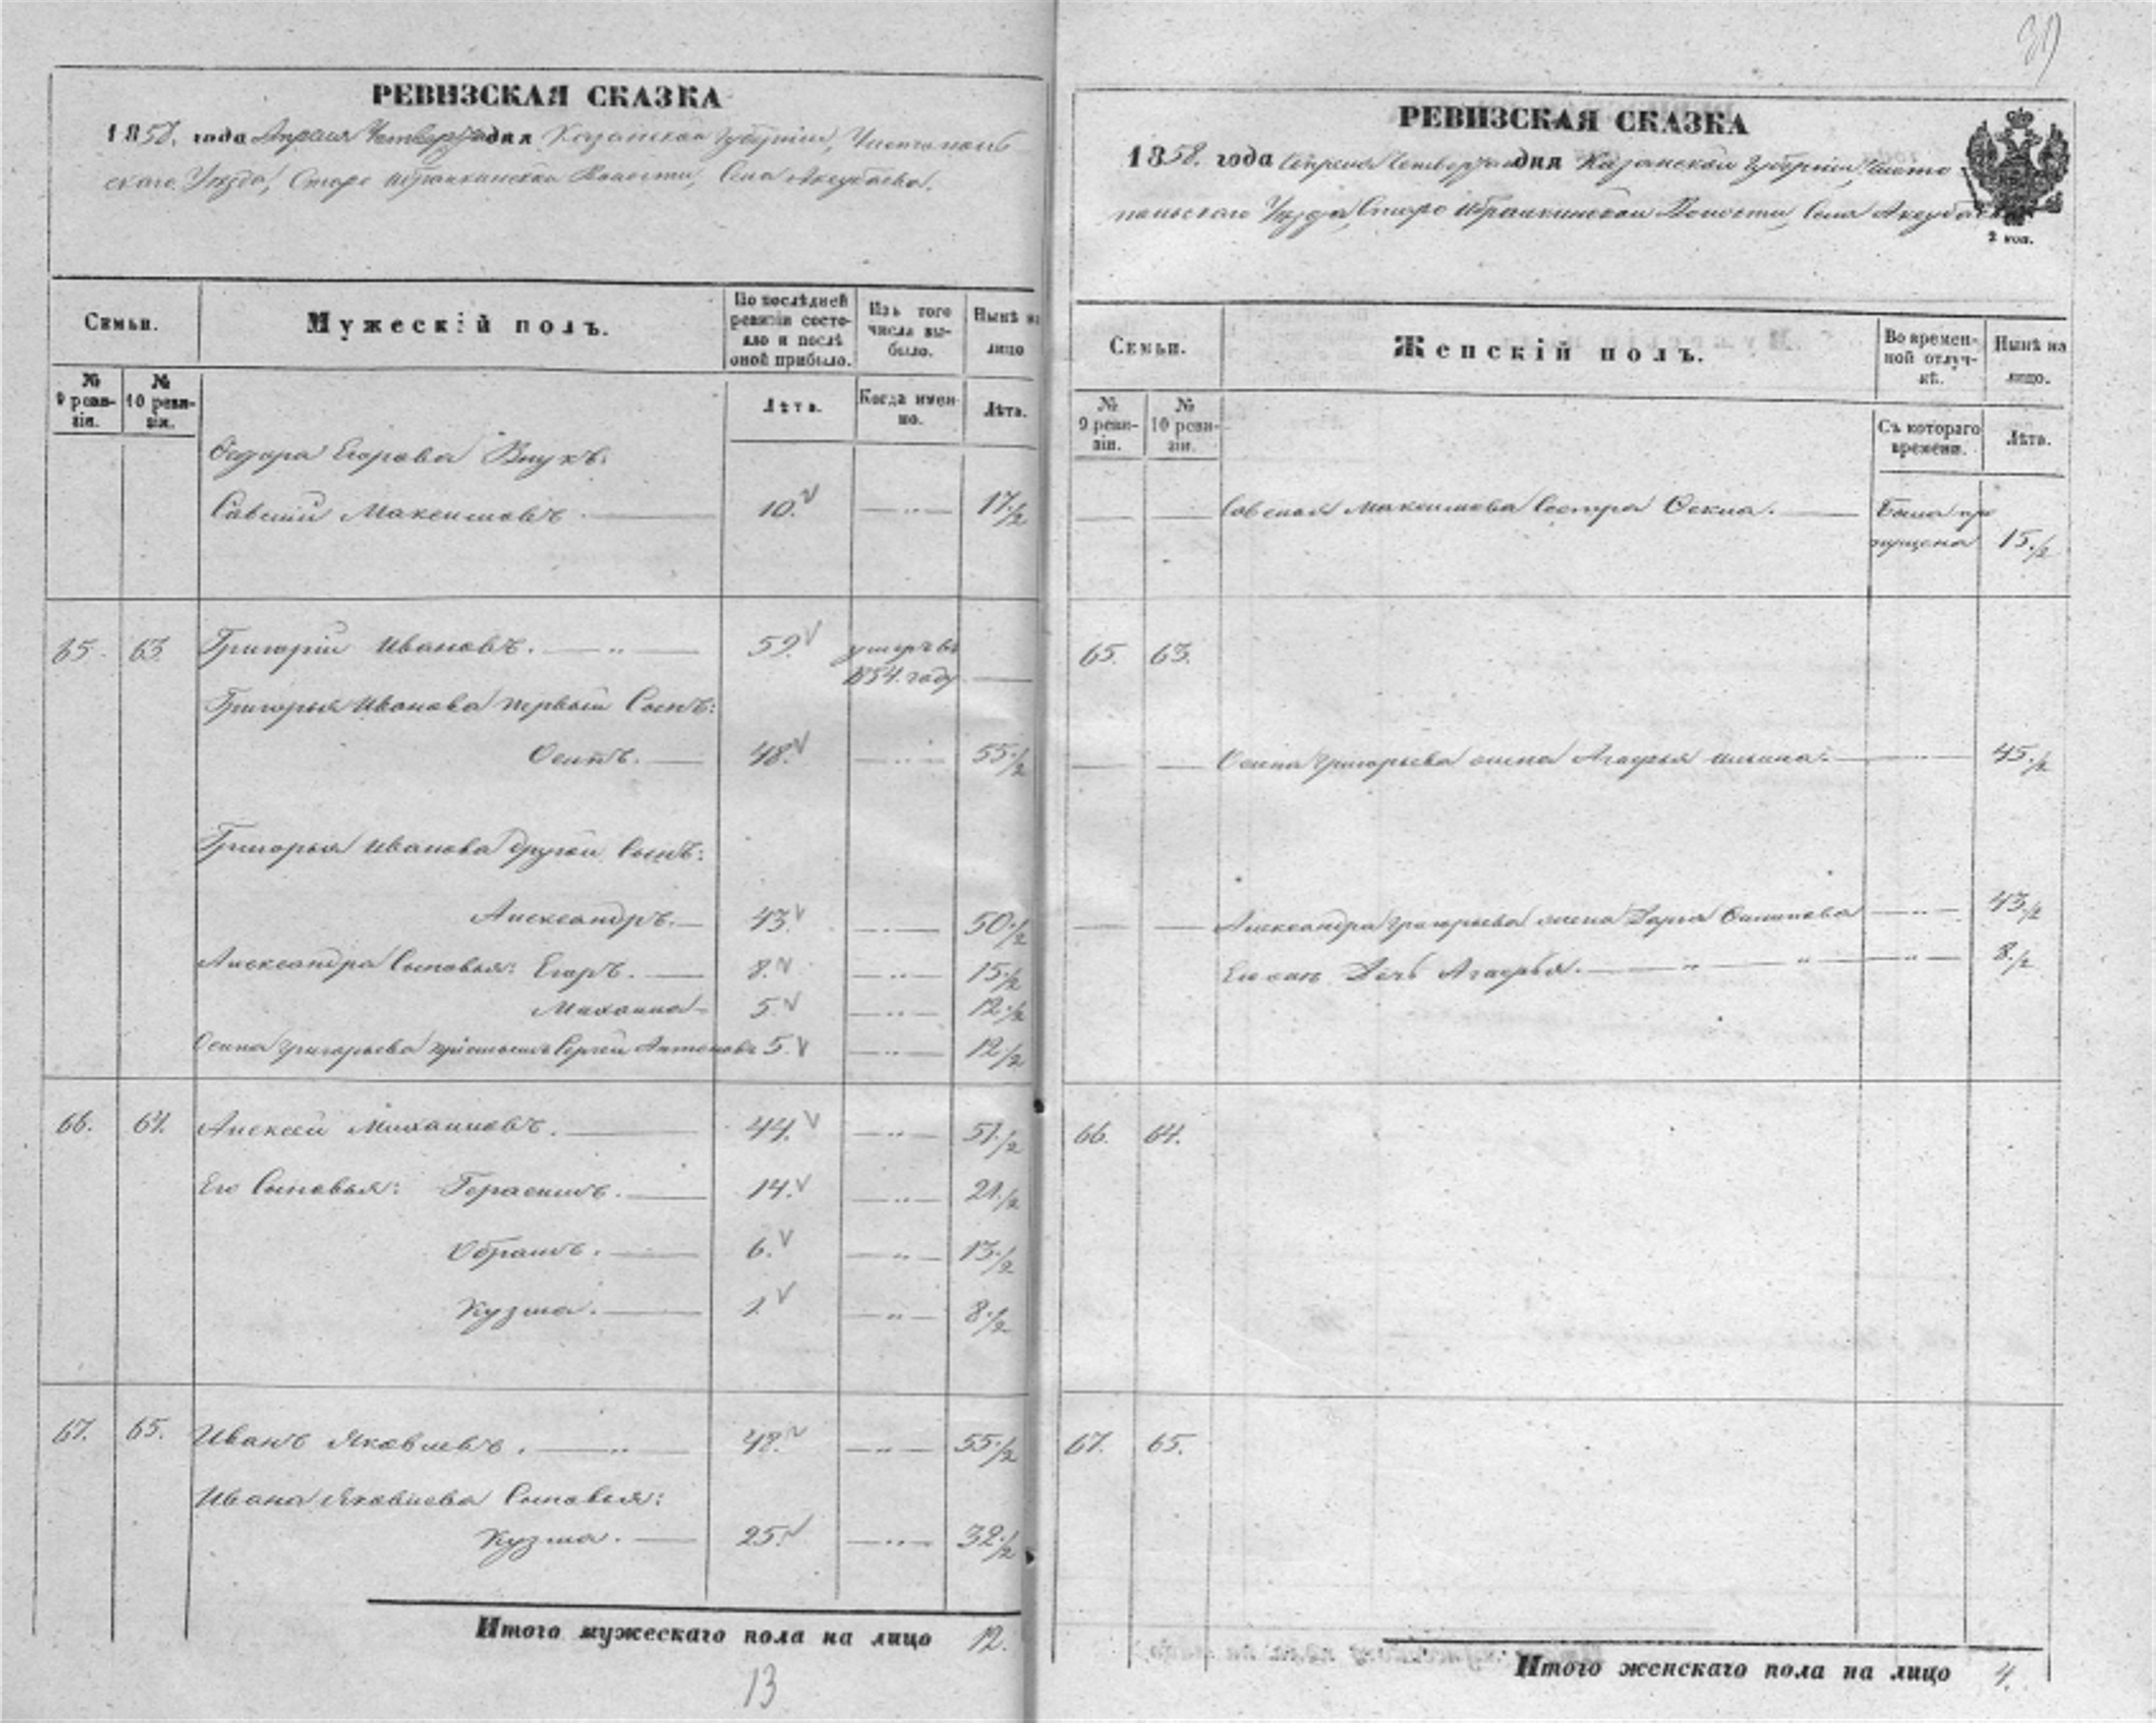 РЕВИЗСКАЯ СКАЗКА
1858. года Апреля Четвертаго дня Казанской Губернии, Чистополь-
скаго Уезда, Старо Ибрайкинской Волости, Села Аксубаева.
Семьи.
Мужескій полъ.
По послѣдней ревизіи состояло и послѣ оной прибыло.
Изъ того числа выбыло.
Нынѣ на лицо
№ 9 ревизіи.
№ 10 ревизіи.
Лѣта.
Когда именно.
Лѣта.
Федора Егорова Внукъ:
Савелій Максимовъ 10. 17 1/2
65. 63. Григорій Ивановъ. 59. умеръ въ
1854. году
Григорья Иванова первый Сынъ:
Осипъ. 48. 55 1/2
Григорья Иванова другой Сынъ:
Александръ. 43. 50 1/2
Александра Сыновья: Егоръ. 8. 15 1/2
Михаила 5. 12 1/2
Осипа Григорьева приемышъ Сергей Антоновъ 5. 12 1/2
66. 64. Алексей Михаиловъ. 44. 51 1/2
Его Сыновья: Герасимъ. 14. 21 1/2
Обрамъ. 6. 13 1/2
Кузма. 1 8 1/2
67. 65. Иванъ Яковлевъ. 48. 55 1/2
Ивана Яковлева Сыновья:
Кузма. 25. 32 1/2
Итого мужескаго пола на лицо 12.
13
39
РЕВИЗСКАЯ СКАЗКА
1858. года Апреля Четвертаго дня Казанской Губернии, Чисто
польскаго Уезда, Старо Ибрайкинской Волости, Села Аксубаева
2 коп.
Семьи.
Женскій полъ.
Во временной отлучкѣ.
Нынѣ на лицо.
№ 9 ревизіи.
№ 10 ревизіи.
Съ котораго времени.
Лѣта.
Савелья Максимова Сестра Фекла. Была про
пущена 15 1/2
65. 63.
Осипа Григорьева жена Агафья Ильина. 45 1/2
Александра Григорьева жена Дарья Филипова 43 1/2
Его дочь Агафья. 8 1/2
66. 64.
67. 65.
Итого женскаго пола на лицо 4.